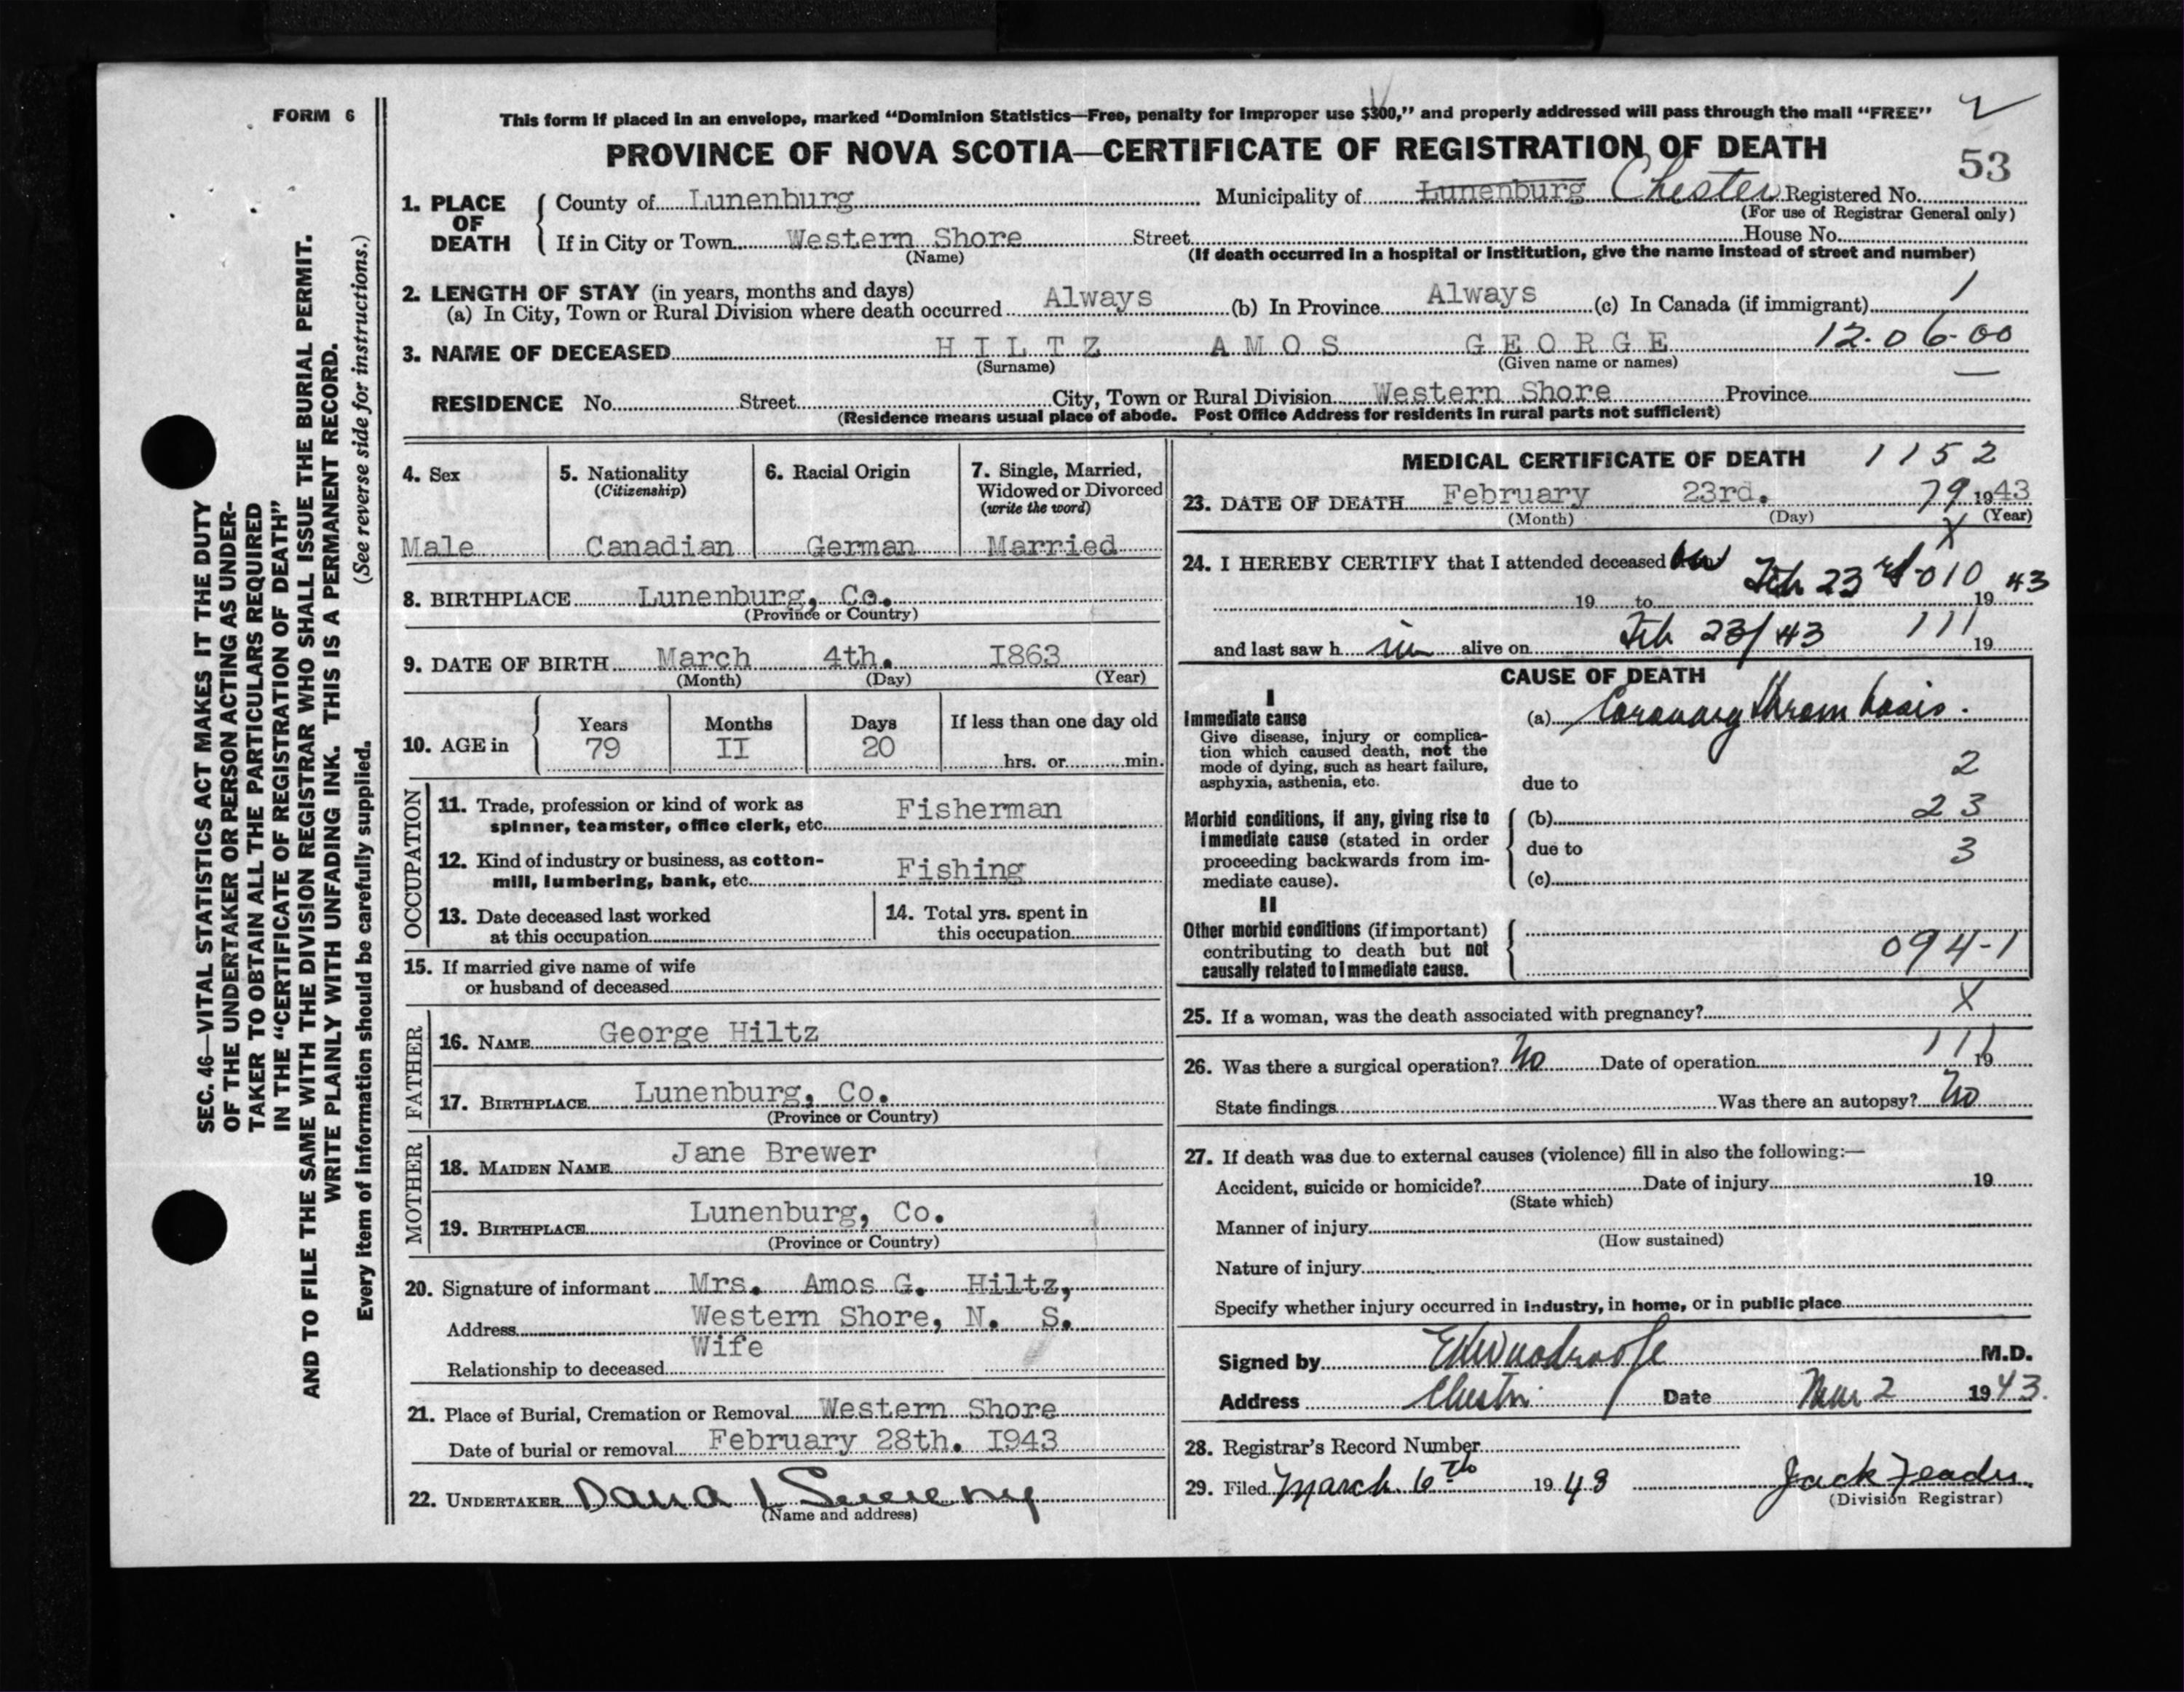 FORM 6
This form if placed in an envelope, marked “Dominion Statistics—Free, penalty for improper use $300,” and properly addressed will pass through the mail “FREE”
PROVINCE OF NOVA SCOTIA—CERTIFICATE OF REGISTRATION OF DEATH
53
1. PLACE OF DEATH
County of Lunenburg Municipality of Lunenburg Chester Registered No.
(For use of Registrar General only)
If in City or Town Western Shore Street House No.
(Name) (If death occurred in a hospital or institution, give the name instead of street and number)
2. LENGTH OF STAY (in years, months and days)
(a) In City, Town or Rural Division where death occurred Always (b) In Province Always (c) In Canada (if immigrant) 1
3. NAME OF DECEASED HILTZ AMOS GEORGE 12-06-00
(Surname) (Given name or names)
RESIDENCE No. Street City, Town or Rural Division Western Shore Province
(Residence means usual place of abode. Post Office Address for residents in rural parts not sufficient)
4. Sex
Male
5. Nationality
(Citizenship)
Canadian
6. Racial Origin
German
7. Single, Married,
Widowed or Divorced
(write the word)
Married
8. BIRTHPLACE Lunenburg, Co.
(Province or Country)
9. DATE OF BIRTH March 4th. I863
(Month) (Day) (Year)
10. AGE in
Years Months Days If less than one day old
79 II 20 hrs. or min.
OCCUPATION
11. Trade, profession or kind of work as
spinner, teamster, office clerk, etc. Fisherman
12. Kind of industry or business, as cotton-
mill, lumbering, bank, etc. Fishing
13. Date deceased last worked
at this occupation
14. Total yrs. spent in
this occupation
15. If married give name of wife
or husband of deceased
FATHER
16. NAME George Hiltz
17. BIRTHPLACE Lunenburg, Co.
(Province or Country)
MOTHER
18. MAIDEN NAME Jane Brewer
19. BIRTHPLACE Lunenburg, Co.
(Province or Country)
20. Signature of informant Mrs. Amos G. Hiltz,
Address Western Shore, N. S.
Relationship to deceased Wife
21. Place of Burial, Cremation or Removal Western Shore
Date of burial or removal February 28th. I943
22. UNDERTAKER Dana L Sweeny
(Name and address)
MEDICAL CERTIFICATE OF DEATH 1152
23. DATE OF DEATH February 23rd. 79 1943
(Month) (Day) (Year)
X
24. I HEREBY CERTIFY that I attended deceased on Feb 23rd 010 43
19 to 19
and last saw h im alive on Feb 23/43 111 19
CAUSE OF DEATH
I
Immediate cause
Give disease, injury or complica-
tion which caused death, not the
mode of dying, such as heart failure,
asphyxia, asthenia, etc.
(a) Coronary thrombosis.
due to 2
Morbid conditions, if any, giving rise to
immediate cause (stated in order
proceeding backwards from im-
mediate cause).
(b) 23
due to 3
(c)
II
Other morbid conditions (if important)
contributing to death but not
causally related to immediate cause.
094-1
25. If a woman, was the death associated with pregnancy? X
26. Was there a surgical operation? No Date of operation 111 19
State findings Was there an autopsy? No
27. If death was due to external causes (violence) fill in also the following:—
Accident, suicide or homicide? Date of injury 19
(State which)
Manner of injury
(How sustained)
Nature of injury
Specify whether injury occurred in industry, in home, or in public place
Signed by M.D.
Address Chester Date Mar 2 1943.
28. Registrar's Record Number
29. Filed March 6th 1943 Jack
(Division Registrar)
SEC. 46—VITAL STATISTICS ACT MAKES IT THE DUTY
OF THE UNDERTAKER OR PERSON ACTING AS UNDER-
TAKER TO OBTAIN ALL THE PARTICULARS REQUIRED
IN THE “CERTIFICATE OF REGISTRATION OF DEATH”
AND TO FILE THE SAME WITH THE DIVISION REGISTRAR WHO SHALL ISSUE THE BURIAL PERMIT.
WRITE PLAINLY WITH UNFADING INK. THIS IS A PERMANENT RECORD.
Every item of information should be carefully supplied. (See reverse side for instructions.)